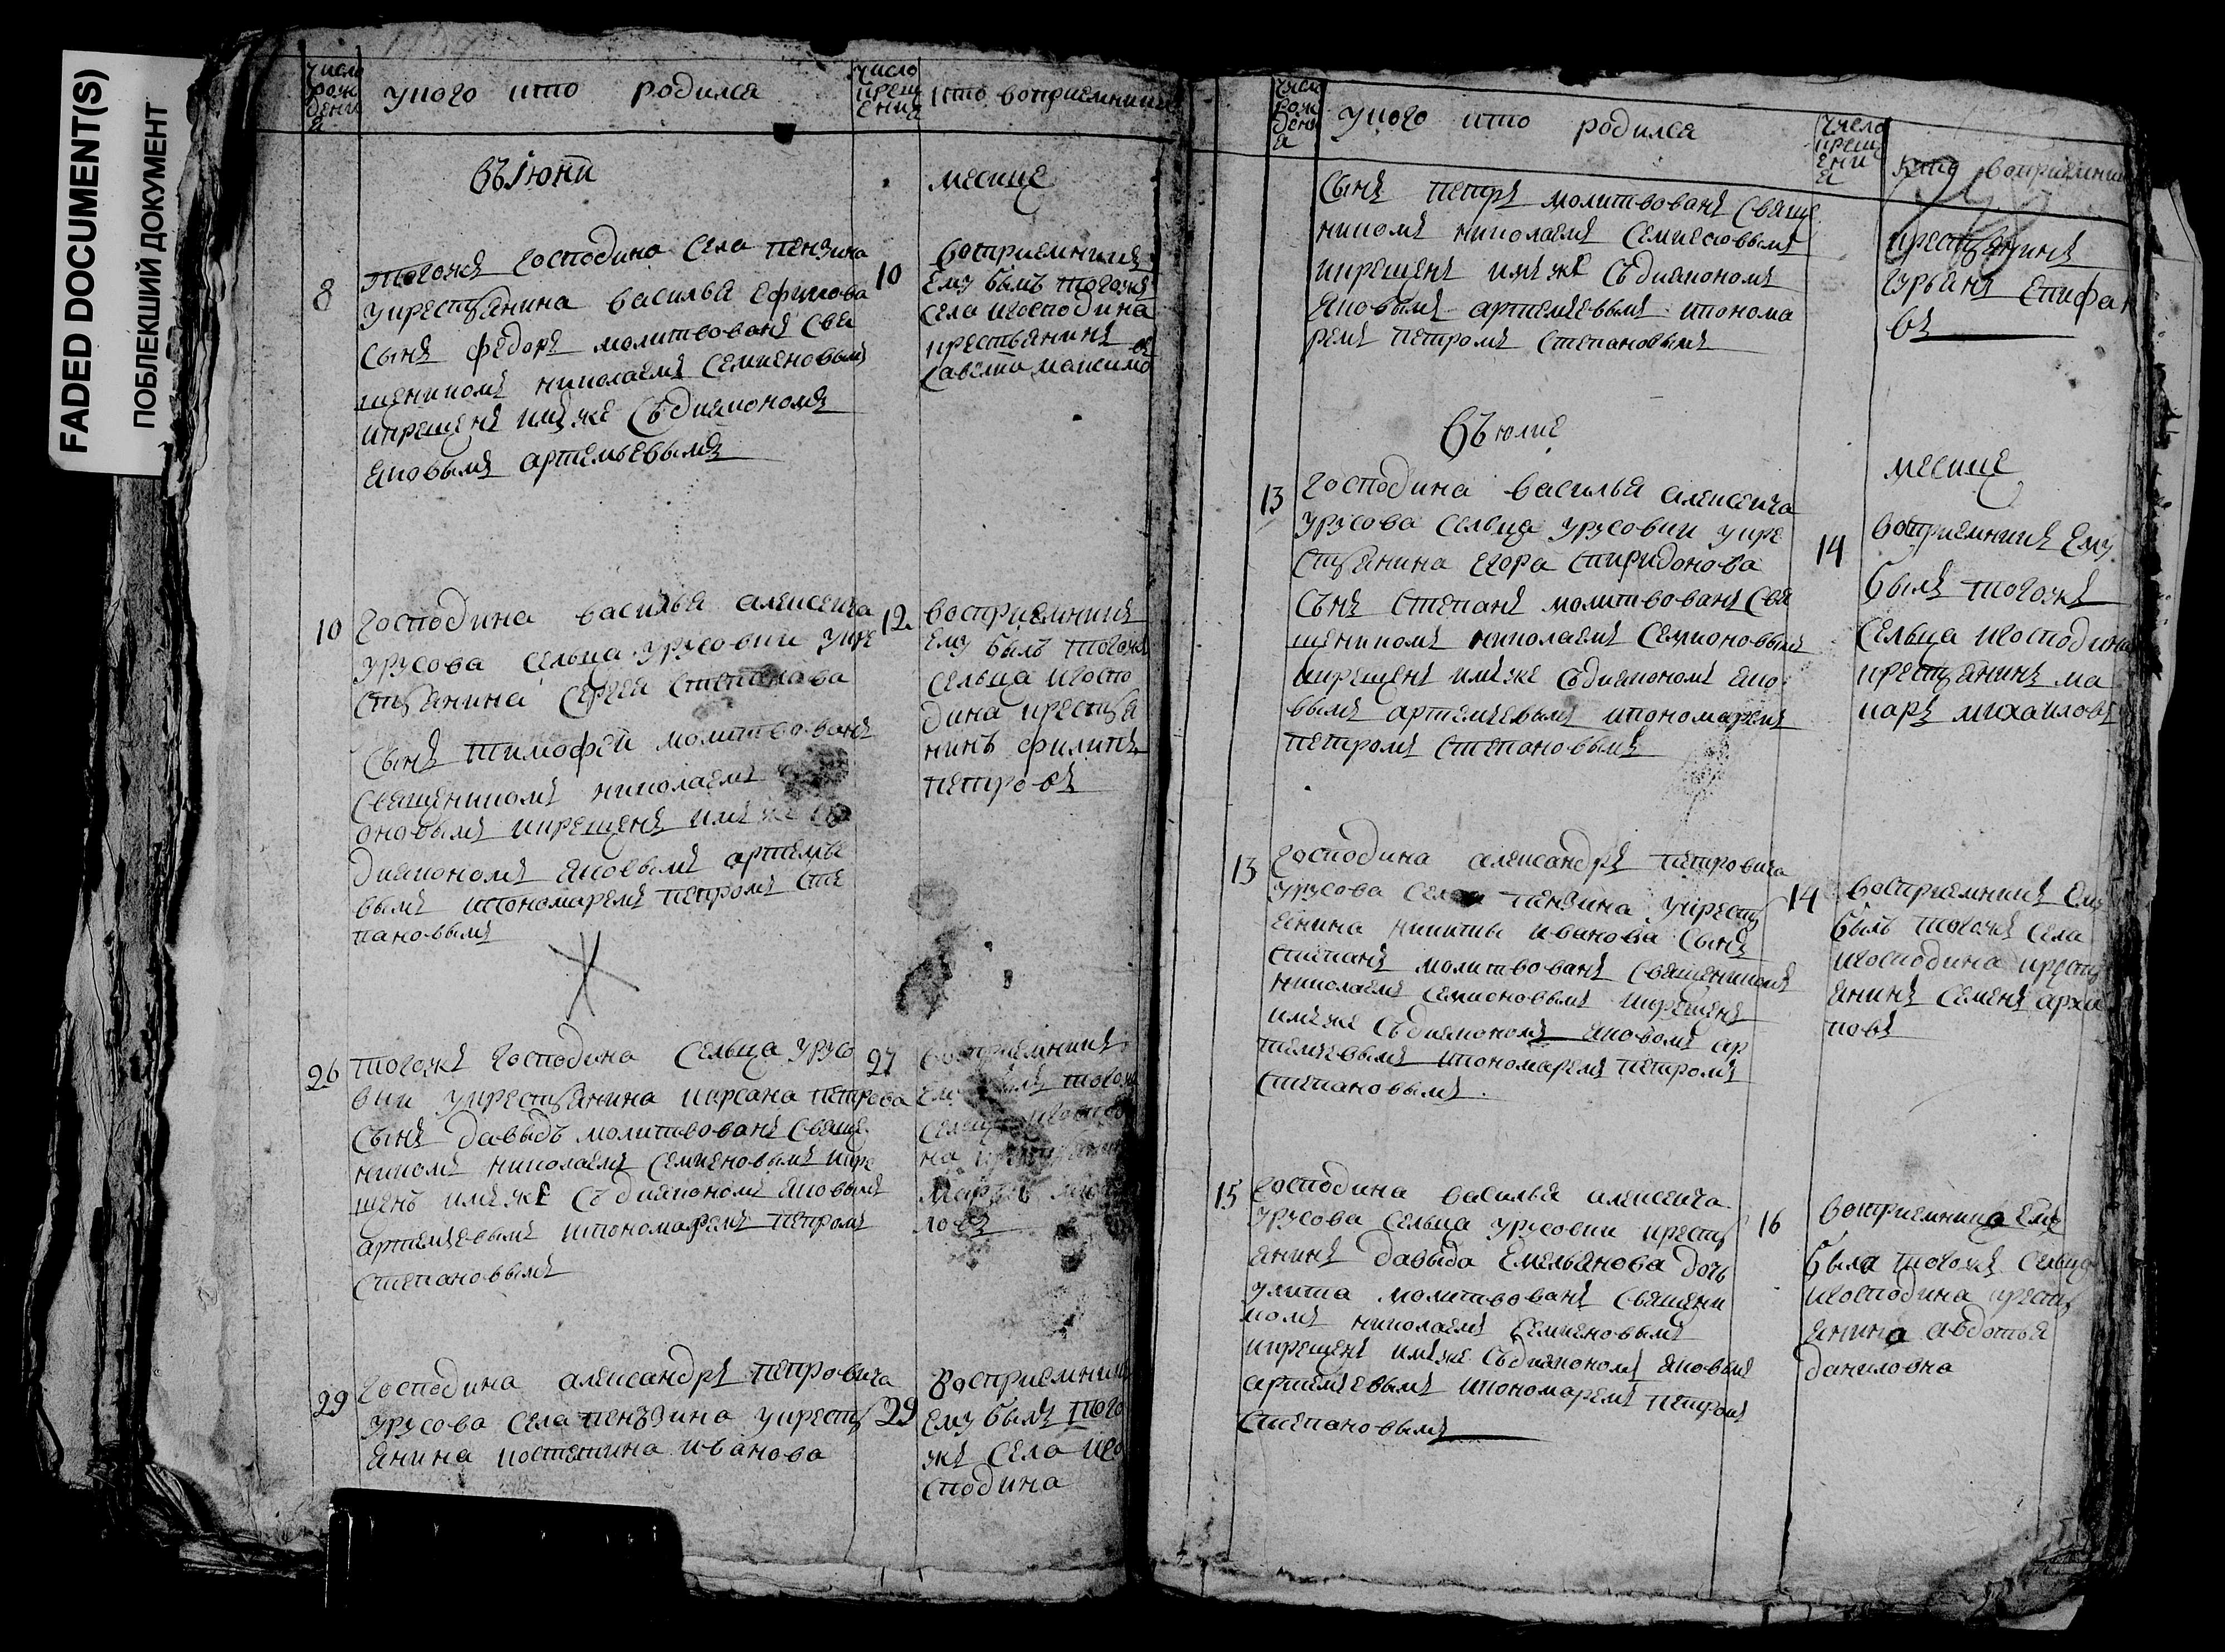 FADED DOCUMENT(S)
ПОБЛЕКШИЙ ДОКУМЕНТ
число рождения
у кого кто родился
число крещения
кто восприемники
въ Июни
месице
8
тогожъ господина села пензина
укрестьянина василья ефимова
сынъ федоръ молитвованъ свя
щеникомъ николаемъ семиеновымъ
икрещенъ имъ же съ диаконом
яковымъ артемьевымъ
10
восприемникъ
ему былъ тогожъ
села игосподина
крестьянинъ
савелий максимо
въ
10
господина василья алексеича
урусова сельца урусовки укре
стьянина сергея степанова
сынъ тимофей молитвованъ
священикомъ николаемъ
оновымъ икрещенъ имъ же съ
диакономъ яковымъ артемье
вымъ ипономаремъ петромъ сте
пановымъ
12
восприемникъ
ему былъ тогожъ
сельца игоспо
дина крестья
нинъ филипъ
петровъ
26
тогожъ господина сельца урусо
вки укрестьянина кирсана петрова
сынъ давыдъ молитвованъ свяще
никомъ николаемъ семиеновымъ икре
щенъ имъ же съ диакономъ яковымъ
артемъевымъ ипономаремъ петромъ
степановымъ
27
восприемникъ
ему былъ тогожъ
сельца игосподи
на крестьянин
ловъ
29
господина александръ петровича
урусова села пензина укресть
янина костентина иванова
29
восприемник
ему былъ того
жъ села иго
сподина
число рождения
у кого кто родился
число крещения
кто восприемники
сынъ петръ молитвованъ свяще
никомъ николаемъ семиеновымъ
икрещенъ имъ же съ диакономъ
яковымъ артемъевымъ ипонома
ремъ петромъ степановымъ
крестьянинъ
гурьянъ епифан
въ
въ юлие
месице
13
господина василья алексеича
урусова сельца урусовки укре
стьянина егора спиридонова
сынъ степанъ молитвованъ свя
щеникомъ николаемъ семионовымъ
икрещенъ имъ же съ диакономъ яко
вымъ артемъевымъ ипономаремъ
петромъ степановымъ
14
восприемникъ ему
былъ тогожъ
сельца игосподина
крестьянинъ ма
каръ михаиловъ
13
господина александръ петровича
урусова села пензина укресть
янина никиты иванова сынъ
степанъ молитвованъ священикомъ
николаемъ семионовымъ икрещенъ
имъ же съ диакономъ яковомъ ар
темъевымъ ипономаремъ петромъ
степановымъ
14
восприемникъ ему
былъ тогожъ села
игосподина кресть
янинъ семенъ архи
повъ
15
господина василья алексеича
урусова сельца урусовки кресть
янинъ давыда емельянова дочь
улита молитвованъ священи
комъ николаемъ семиеновымъ
икрещенъ имъ же съ диакономъ яковымъ
артемъевымъ ипономаремъ петромъ
степановымъ
16
восприемница ему
была тогожъ сельца
игосподина кресть
янина авдотья
даниловна